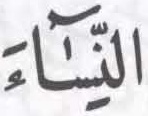 النِّسَآءَ